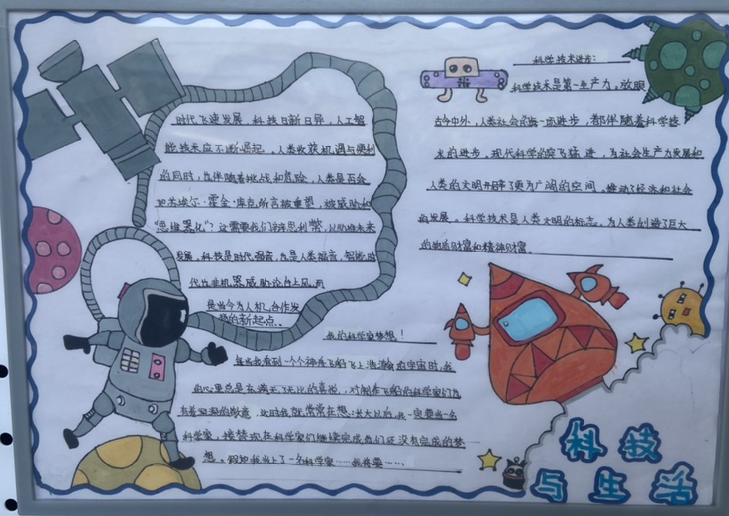 时代飞速发展，科技日新月异，人工智
能技术应不断崛起，人类收获机遇与便利
的同时，也伴随着挑战和危险，人类是否会
“思维器化”？还需要我们辨思利弊，以助推未来
发展。科技是时代强音，也是人类福音，智能时
是当今为人机合作发
展的新起点。
科学技术进步：
科学技术是第一生产力，放眼
古今中外，人类社会的每一项进步，都伴随着科学技
术的进步。现代科学的突飞猛进，为社会生产力发展和
人类的文明开辟了更为广阔的空间，推动了经济和社会
的发展。科学技术是人类文明的标志。为人类创造了巨大
的物质财富和精神财富。
我的科学家梦想！
每当我看到一个个神舟飞船飞上浩瀚的宇宙时，我
的心里总是充满了无比的喜悦，对制作飞船的科学家们充
有着深深的敬意，此时我就常常在想：长大以后，我一定要当一名
科学家，接替现在科学家们继续完成他们还没有完成的梦
想。假如我当上了一名科学家……我要……
科技
与生活